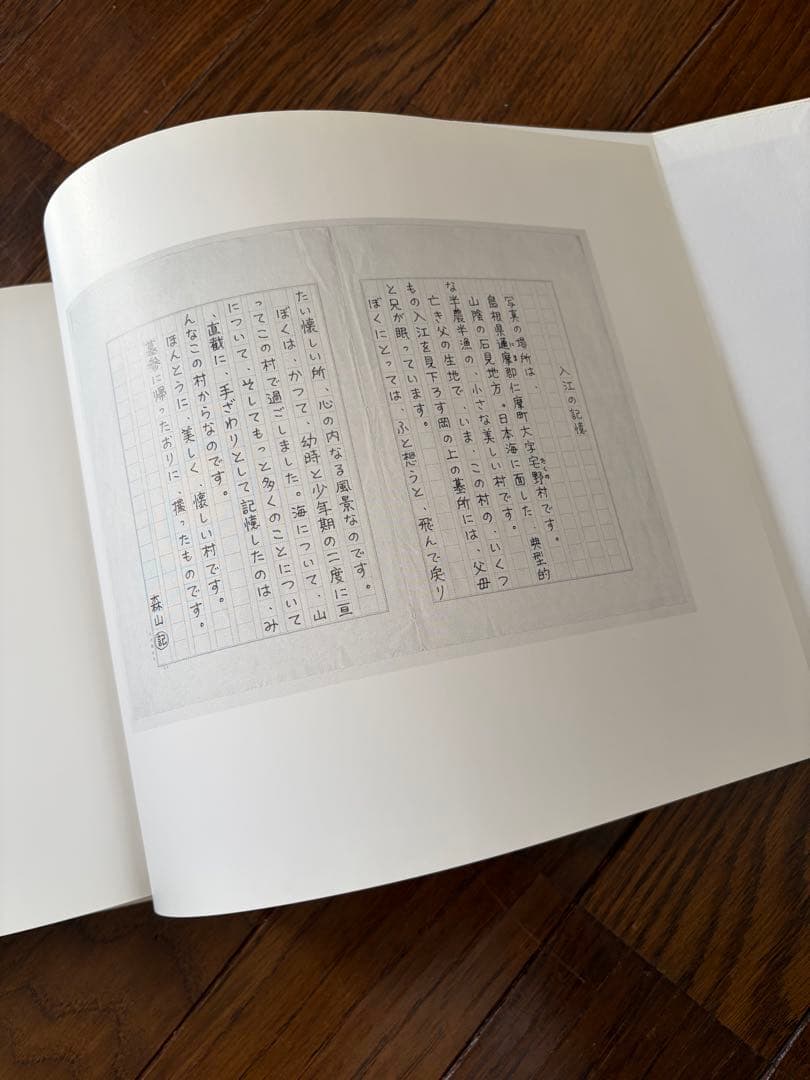 入江の記憶
写真の場所は、
島根県邇摩郡仁摩町大字宅野村です。
山陰の石見地方。日本海に面した、典型的
な半農半漁の、小さな美しい村です。
亡き父の生地で、いま、この村の、いくつ
もの入江を見下ろす岡の上の墓所には、父母
と兄が眠っています。
ぼくにとっては、ふと想うと、飛んで戻り
たい懐しい所、心の内なる風景なのです。
ぼくは、かつて、幼時と少年期の二度に亘
ってこの村で過ごしました。海について、山
について、そしてもっと多くのことについて
、直截に、手ざわりとして記憶したのは、み
んなこの村からなのです。
ほんとうに、美しく、懐しい村です。
墓参に帰ったおりに、撮ったものです。
森山 記